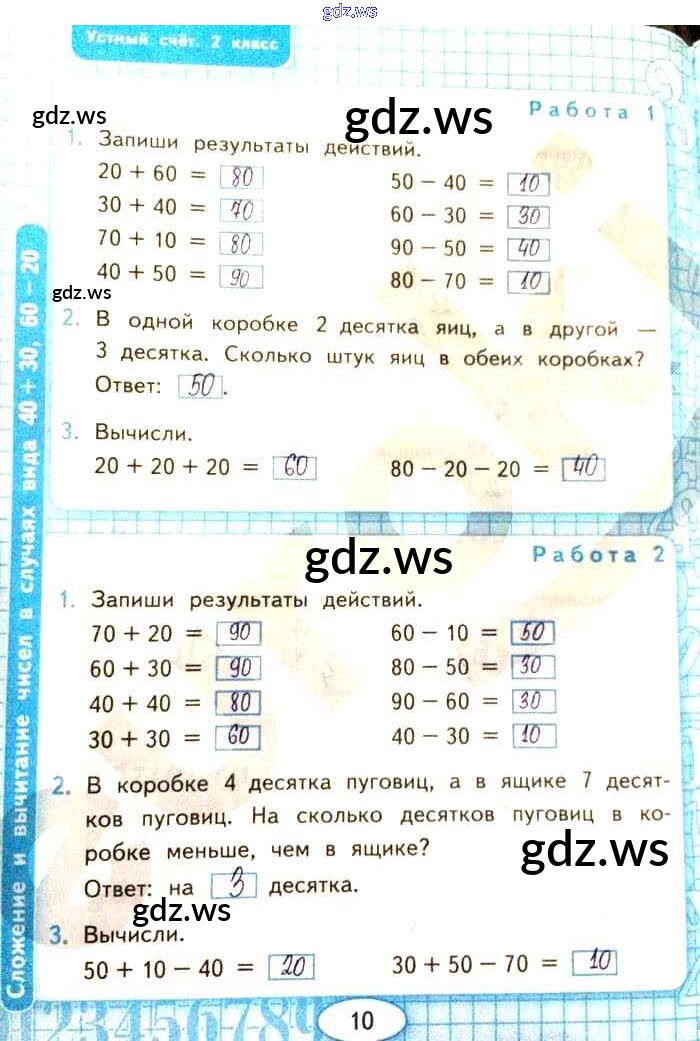 gdz.ws
Устный счёт. 2 класс
gdz.ws
gdz.ws
Работа 1
1. Запиши результаты действий.
20 + 60 = 80
50 − 40 = 10
30 + 40 = 70
60 − 30 = 30
70 + 10 = 80
90 − 50 = 40
40 + 50 = 90
80 − 70 = 10
gdz.ws
2. В одной коробке 2 десятка яиц, а в другой —
3 десятка. Сколько штук яиц в обеих коробках?
Ответ: 50.
3. Вычисли.
20 + 20 + 20 = 60
80 − 20 − 20 = 40
gdz.ws
Работа 2
1. Запиши результаты действий.
70 + 20 = 90
60 − 10 = 50
60 + 30 = 90
80 − 50 = 30
40 + 40 = 80
90 − 60 = 30
30 + 30 = 60
40 − 30 = 10
2. В коробке 4 десятка пуговиц, а в ящике 7 десят-
ков пуговиц. На сколько десятков пуговиц в ко-
робке меньше, чем в ящике?
gdz.ws
Ответ: на 3 десятка.
gdz.ws
3. Вычисли.
50 + 10 − 40 = 20
30 + 50 − 70 = 10
Сложение и вычитание чисел в случаях вида 40 + 30, 60 − 20
123456789
10